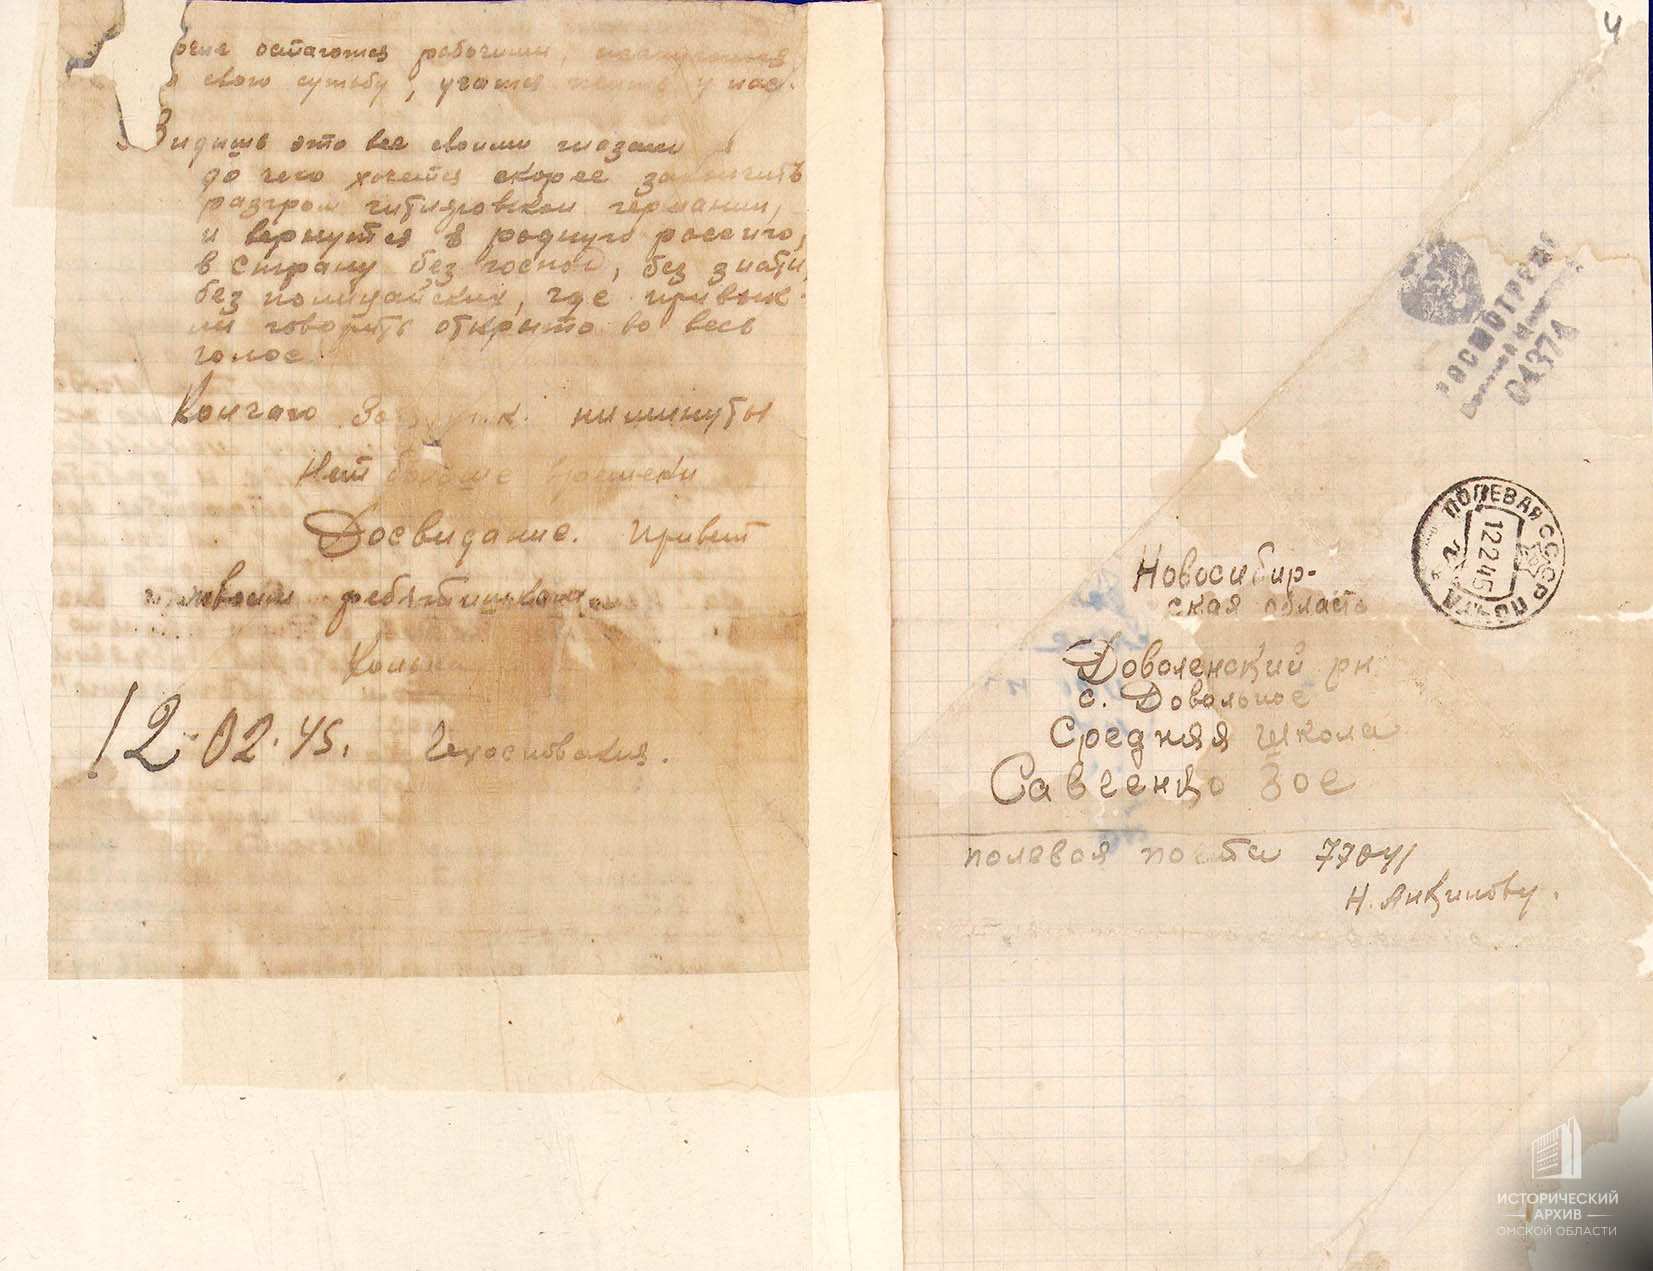 остаются рабочими,
свою судьбу, учатся у нас.
Видишь это все своими глазами
до чего хочется скорее закончить
разгром гитлеровской германии,
и вернутся в родную россию,
в страну без господ, без знати,
без полицайских, где привык-
ли говорить открыто во весь
голос.
Кончаю ни минуты
Нет больше времени
Досвидание. Привет
твоим ребятишкам
12.02.45. Чехословакия.
4
ПРОСМОТРЕНО
04374
ПОЛЕВАЯ ПОЧТА
СССР
12 2 45
Новосибир-
ская область
Доволенский рн
с. Довольное
Средняя школа
Савченко Зое
полевая почта 77041
Н.
ИСТОРИЧЕСКИЙ
АРХИВ
ОМСКОЙ ОБЛАСТИ